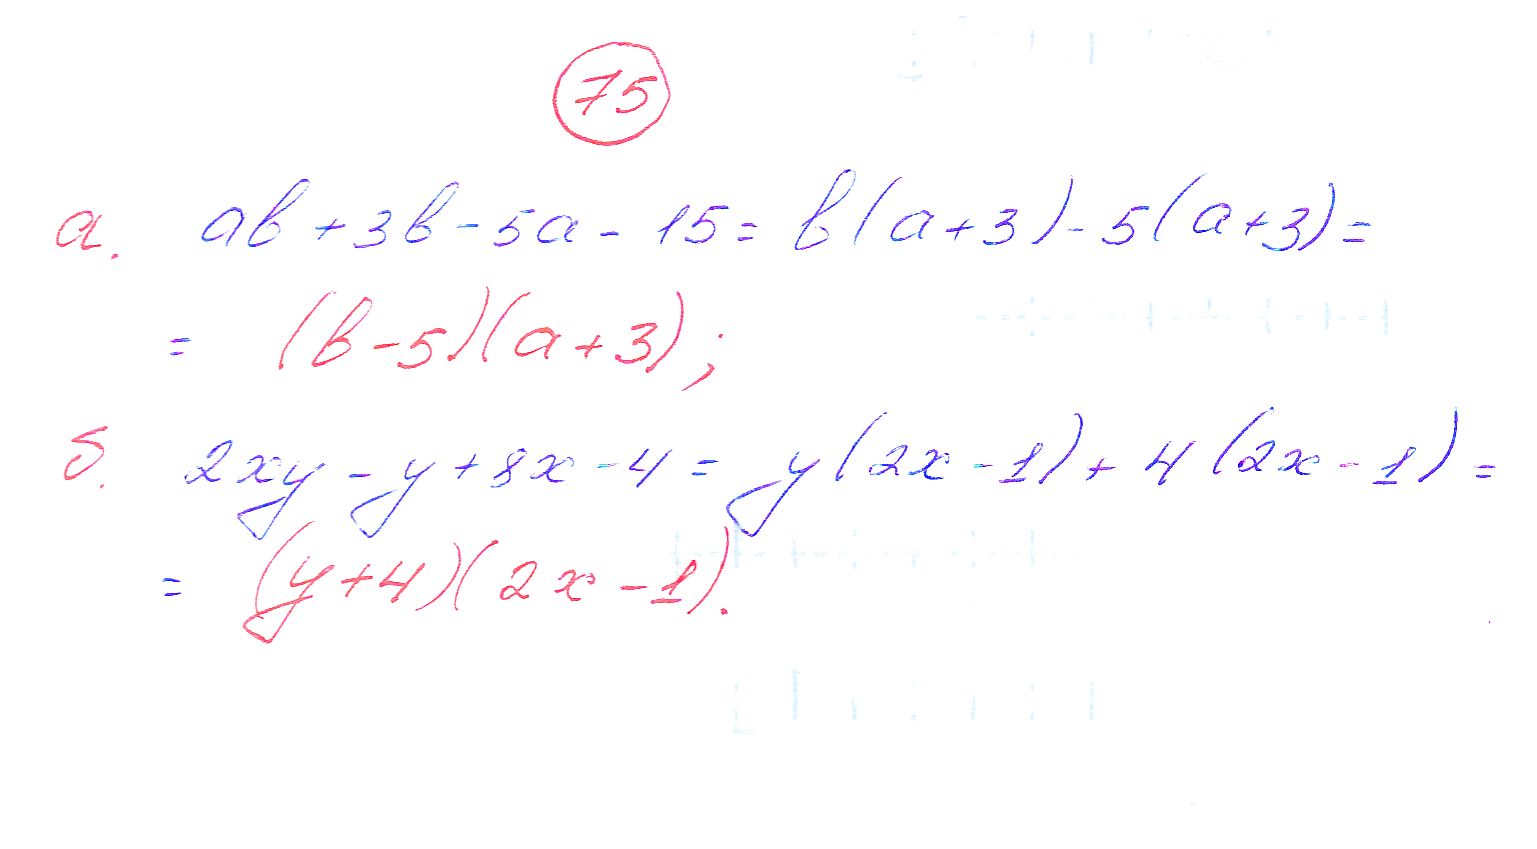 75
а. ab + 3b - 5a - 15 = b(a+3) - 5(a+3) =
= (b-5)(a+3);
б. 2xy - y + 8x - 4 = y(2x-1) + 4(2x-1) =
= (y+4)(2x-1).